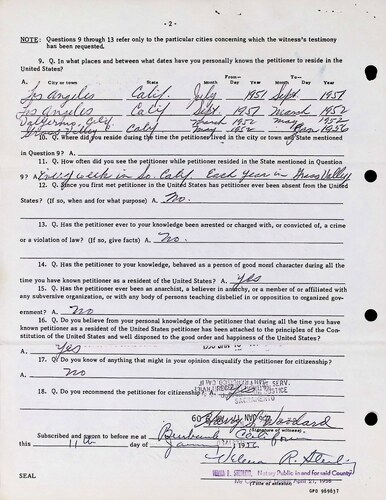 - 2 -
NOTE: Questions 9 through 13 refer only to the particular cities concerning which the witness's testimony
has been requested.
9. Q. In what places and between what dates have you personally known the petitioner to reside in the
United States?
From— To—
A. City or town State Month Day Year Month Day Year
Los Angeles Calif. July 1951 Sept. 1951
Los Angeles Calif Sept. 1951 March 1952
Palermo, Calif. March 1952 May 1952
Grass Valley Calif May 1952 Jan 1956
10. Q. Where did you reside during the time the petitioner lived in the city or town and State mentioned
in Question 9? A.
11. Q. How often did you see the petitioner while petitioner resided in the State mentioned in Question
9? A. Every week in So. Calif. Each year in Grass Valley
12. Q. Since you first met petitioner in the United States has petitioner ever been absent from the United
States? (If so, when and for what purpose) A. No.
13. Q. Has the petitioner ever to your knowledge been arrested or charged with, or convicted of, a crime
or a violation of law? (If so, give facts) A. No.
14. Q. Has the petitioner to your knowledge, behaved as a person of good moral character during all the
time you have known petitioner as a resident of the United States? A. Yes
15. Q. Has the petitioner ever been an anarchist, a believer in anarchy, or a member of or affiliated with
any subversive organization, or with any body of persons teaching disbelief in or opposition to organized gov-
ernment? A. No
16. Q. Do you believe from your personal knowledge of the petitioner that during all the time you have
known petitioner as a resident of the United States petitioner has been attached to the principles of the Con-
stitution of the United States and well disposed to the good order and happiness of the United States?
A. Yes
17. Q. Do you know of anything that might in your opinion disqualify the petitioner for citizenship?
A. No
18. Q. Do you recommend the petitioner for citizenship? Yes
SACRAMENTO
Woodard
(Signature of witness)
Subscribed and sworn to before me at Burbank California
this 11th day of January 1956.
Notary Public in and for said County
April 21, 1956
(Title of officer)
SEAL
GPO 909637